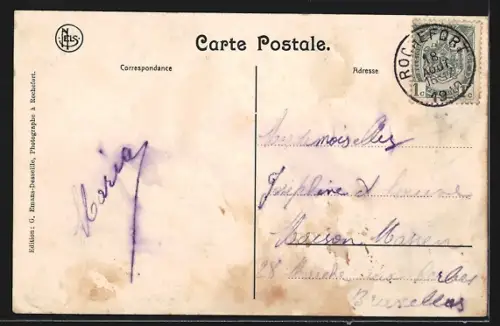 NELS
Carte Postale.
Correspondance
Adresse
ROCHEFORT
18
AOUT
1910
1
Edition: G. Emans-Desseille, Photographe à Rochefort.
Maria
Mesdemoiselles
Joséphine et
Maison
28 Marché aux Herbes
Bruxelles